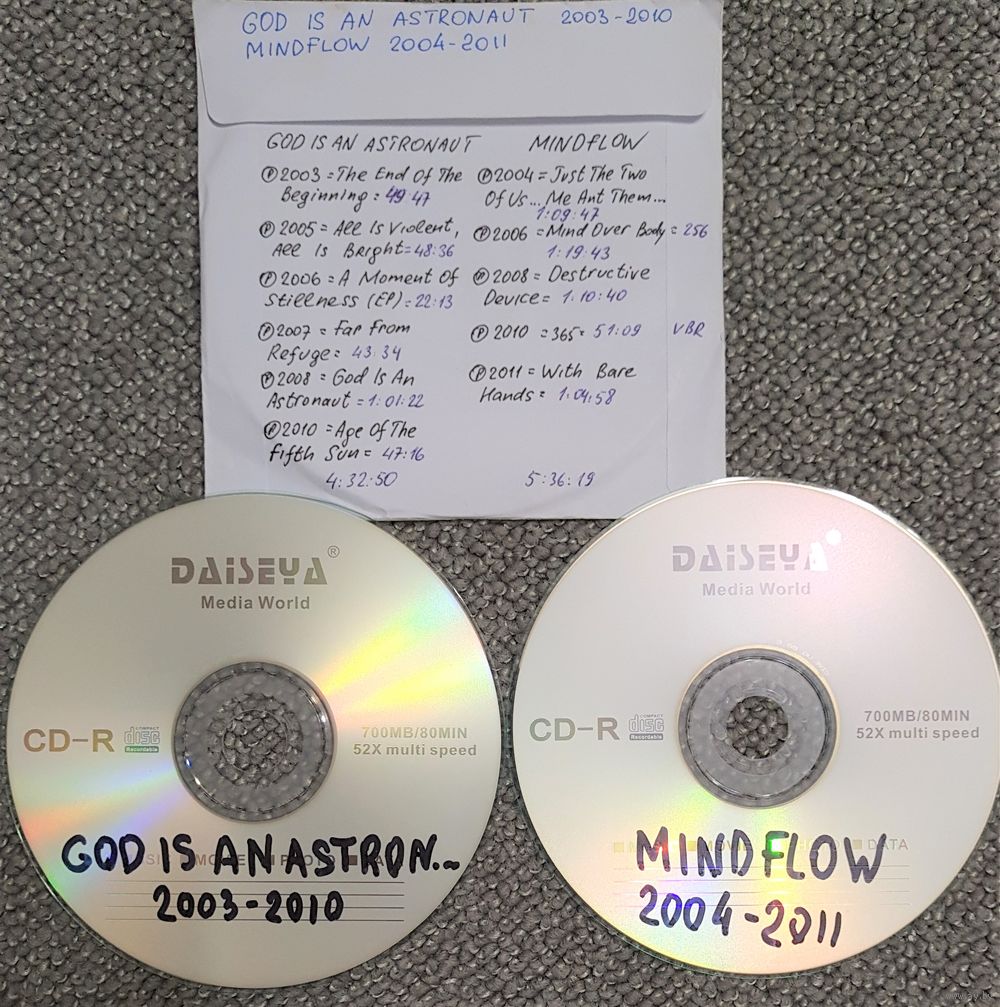 GOD IS AN ASTRONAUT 2003-2010
MINDFLOW 2004-2011
GOD IS AN ASTRONAUT
Ⓟ2003=The End Of The
Beginning= 49:47
Ⓟ2005=All Is Violent,
All Is Bright=48:36
Ⓟ2006=A Moment Of
Stillness (EP)=22:13
Ⓟ2007=Far From
Refuge= 43:34
Ⓟ2008=God Is An
Astronaut=1:01:22
Ⓟ2010=Age Of The
Fifth Sun=47:16
4:32:50
MINDFLOW
Ⓟ2004=Just The Two
Of Us...Me Ant Them...
1:09:47
Ⓟ2006=Mind Over Body=256
1:19:43
Ⓟ2008=Destructive
Device= 1:10:40
Ⓟ2010 =365= 51:09 VBR
Ⓟ2011=With Bare
Hands= 1:04:58
5:36:19
DAISEYA®
Media World
CD-R COMPACT disc Recordable
700MB/80MIN
52X multi speed
GOD IS AN ASTRON...
2003-2010
DAISEYA
Media World
CD-R COMPACT disc Recordable
700MB/80MIN
52X multi speed
MINDFLOW
DATA
2004-2011